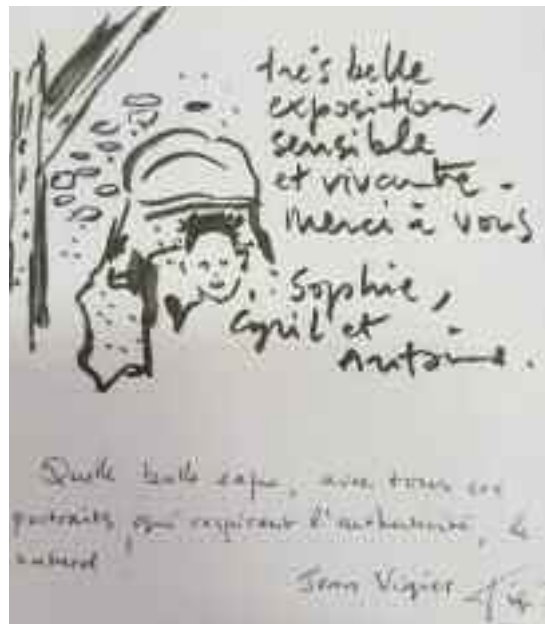 très belle
exposition,
sensible
et vivante.
Merci à vous
Sophie,
Cyril et
Antoine.
Quelle belle expo, avec tous ces
portraits qui respirent l'authenticité, le
naturel !
Jean Vigier